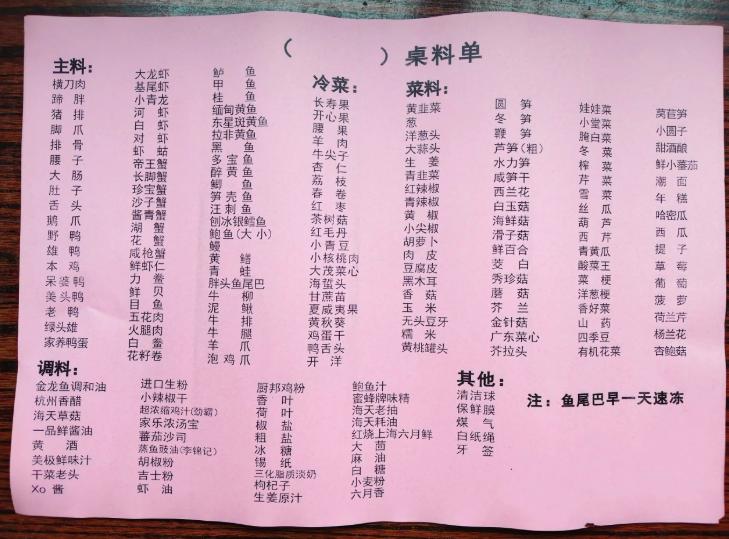 （　　　）桌料单
主料：
横刀肉
蹄胖
猪排
脚爪
排骨
腰子
大肠
肚子
舌头
鹅爪
野鸭
雄鸭
本鸡
呆婆鸭
美头鸭
老鸭
绿头雄
家养鸭蛋
大龙虾
基尾虾
小青龙
河虾
白虾
对虾
虾蛄
帝王蟹
长脚蟹
珍宝蟹
沙子蟹
酱青蟹
湖蟹
花蟹
咸枪蟹
鲜虾仁
力鲞
鲜贝
目鱼
五花肉
火腿肉
白鲞
花籽卷
鲈鱼
甲鱼
桂鱼
缅甸黄鱼
东星斑黄鱼
拉非黄鱼
黑鱼
多宝鱼
醉黄鱼
鲫鱼
笋壳鱼
汪刺鱼
刨冰银鳕鱼
鲍鱼(大小)
鳗
黄鳝
青蛙
胖头鱼尾巴
牛柳
泥鳅
牛排
羊爪
泡鸡爪
冷菜：
长寿果
开心果
腰果
羊肉
牛尖子
杏仁
荔枝
春卷
红枣
茶树菇
红毛丹
小青豆
小核桃肉
大茂菜心
海蜇头
甘蔗苗
夏威夷果
黄秋葵
鸡蛋干
鸭舌头
开洋
菜料：
黄韭菜
葱
洋葱头
大蒜头
生姜
青韭菜
红辣椒
青辣椒
黄椒
小尖椒
胡萝卜
肉皮
豆腐皮
黑木耳
香菇
玉米
无头豆牙
糯米
黄桃罐头
圆笋
冬笋
鞭笋
芦笋(粗)
水力笋
咸笋干
西兰花
白玉菇
海鲜菇
滑子菇
鲜百合
茭白
秀珍菇
蘑菇
芥兰
金针菇
广东菜心
芥拉头
娃娃菜
小堂菜
腌白菜
冬菜
榨菜
芹菜
雪菜
丝瓜
葫芦
西芹
青黄瓜
酸菜王
菜梗
洋葱梗
香好菜
山药
四季豆
有机花菜
莴苣笋
小圆子
甜酒酿
鲜小蕃茄
潮面
年糕
哈密瓜
西瓜
提子
草莓
葡萄
菠萝
荷兰芹
杨兰花
杏鲍菇
调料：
金龙鱼调和油
杭州香醋
海天草菇
一品鲜酱油
黄酒
美极鲜味汁
干菜老头
Xo 酱
进口生粉
小辣椒干
超浓缩鸡汁(劲霸)
家乐浓汤宝
蕃茄沙司
蒸鱼豉油(李锦记)
胡椒粉
吉士粉
虾油
厨邦鸡粉
香叶
荷叶
椒盐
粗盐
冰糖
锡纸
三化脂质淡奶
枸杞子
生姜原汁
鲍鱼汁
蜜蜂牌味精
海天老抽
海天耗油
红烧上海六月鲜
大茴
麻油
白糖
小麦粉
六月香
其他：
清洁球
保鲜膜
煤气
白纸绳
牙签
注：鱼尾巴早一天速冻